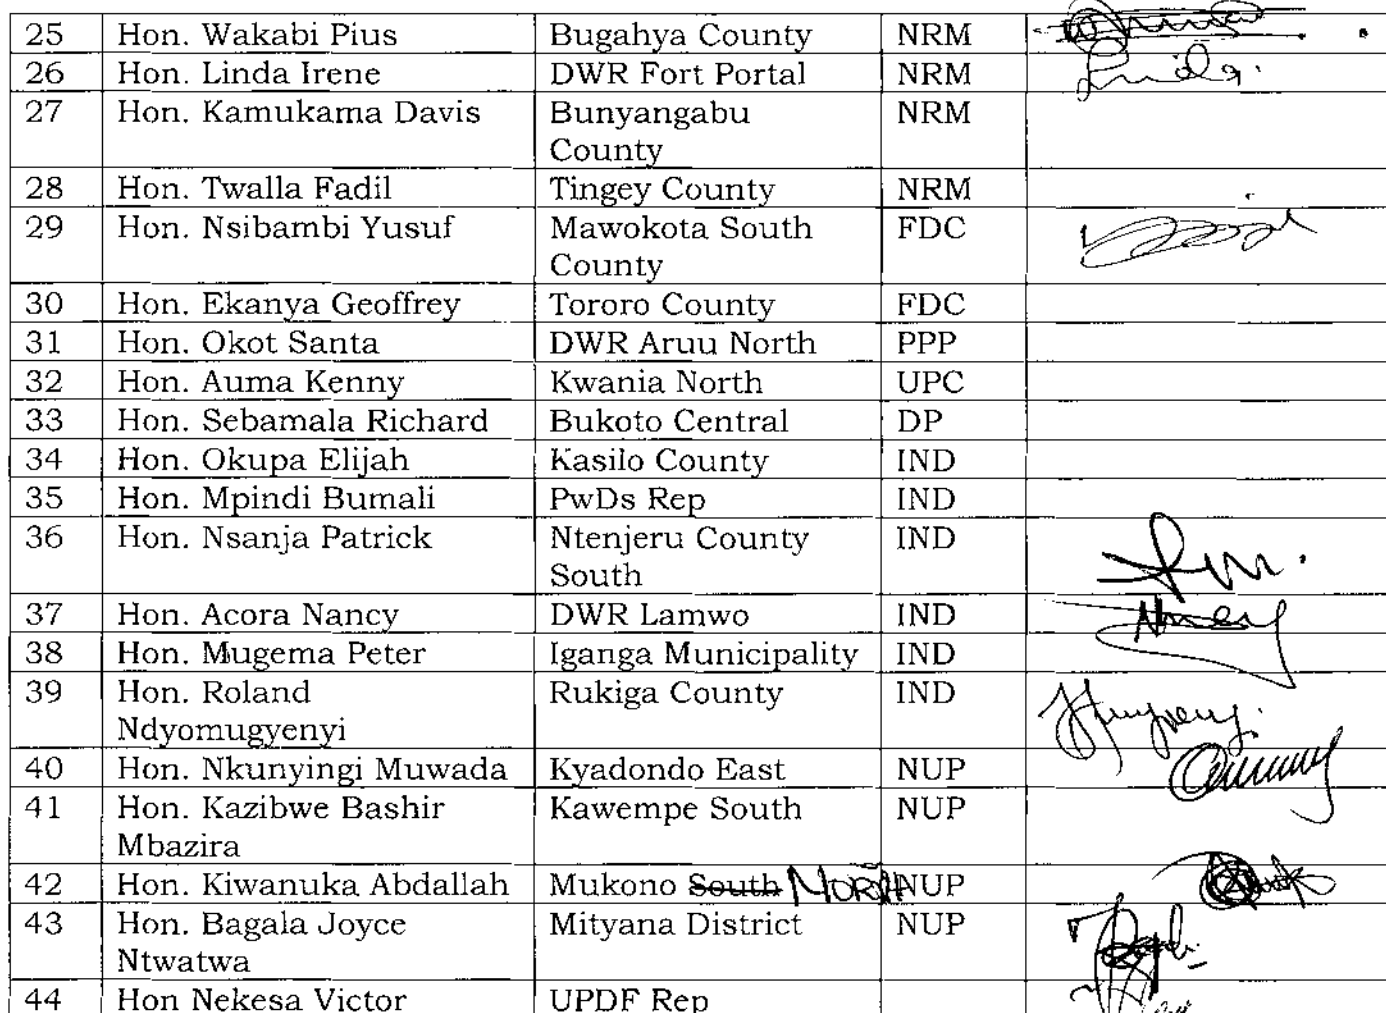 25 Hon. Wakabi Pius Bugahya County NRM
26 Hon. Linda Irene DWR Fort Portal NRM
27 Hon. Kamukama Davis Bunyangabu NRM
County
28 Hon. Twalla Fadil Tingey County NRM
29 Hon. Nsibambi Yusuf Mawokota South FDC
County
30 Hon. Ekanya Geoffrey Tororo County FDC
31 Hon. Okot Santa DWR Aruu North PPP
32 Hon. Auma Kenny Kwania North UPC
33 Hon. Sebamala Richard Bukoto Central DP
34 Hon. Okupa Elijah Kasilo County IND
35 Hon. Mpindi Bumali PwDs Rep IND
36 Hon. Nsanja Patrick Ntenjeru County IND
South
37 Hon. Acora Nancy DWR Lamwo IND
38 Hon. Mugema Peter Iganga Municipality IND
39 Hon. Roland Rukiga County IND
Ndyomugyenyi
40 Hon. Nkunyingi Muwada Kyadondo East NUP
41 Hon. Kazibwe Bashir Kawempe South NUP
Mbazira
42 Hon. Kiwanuka Abdallah Mukono South North NUP
43 Hon. Bagala Joyce Mityana District NUP
Ntwatwa
44 Hon Nekesa Victor UPDF Rep